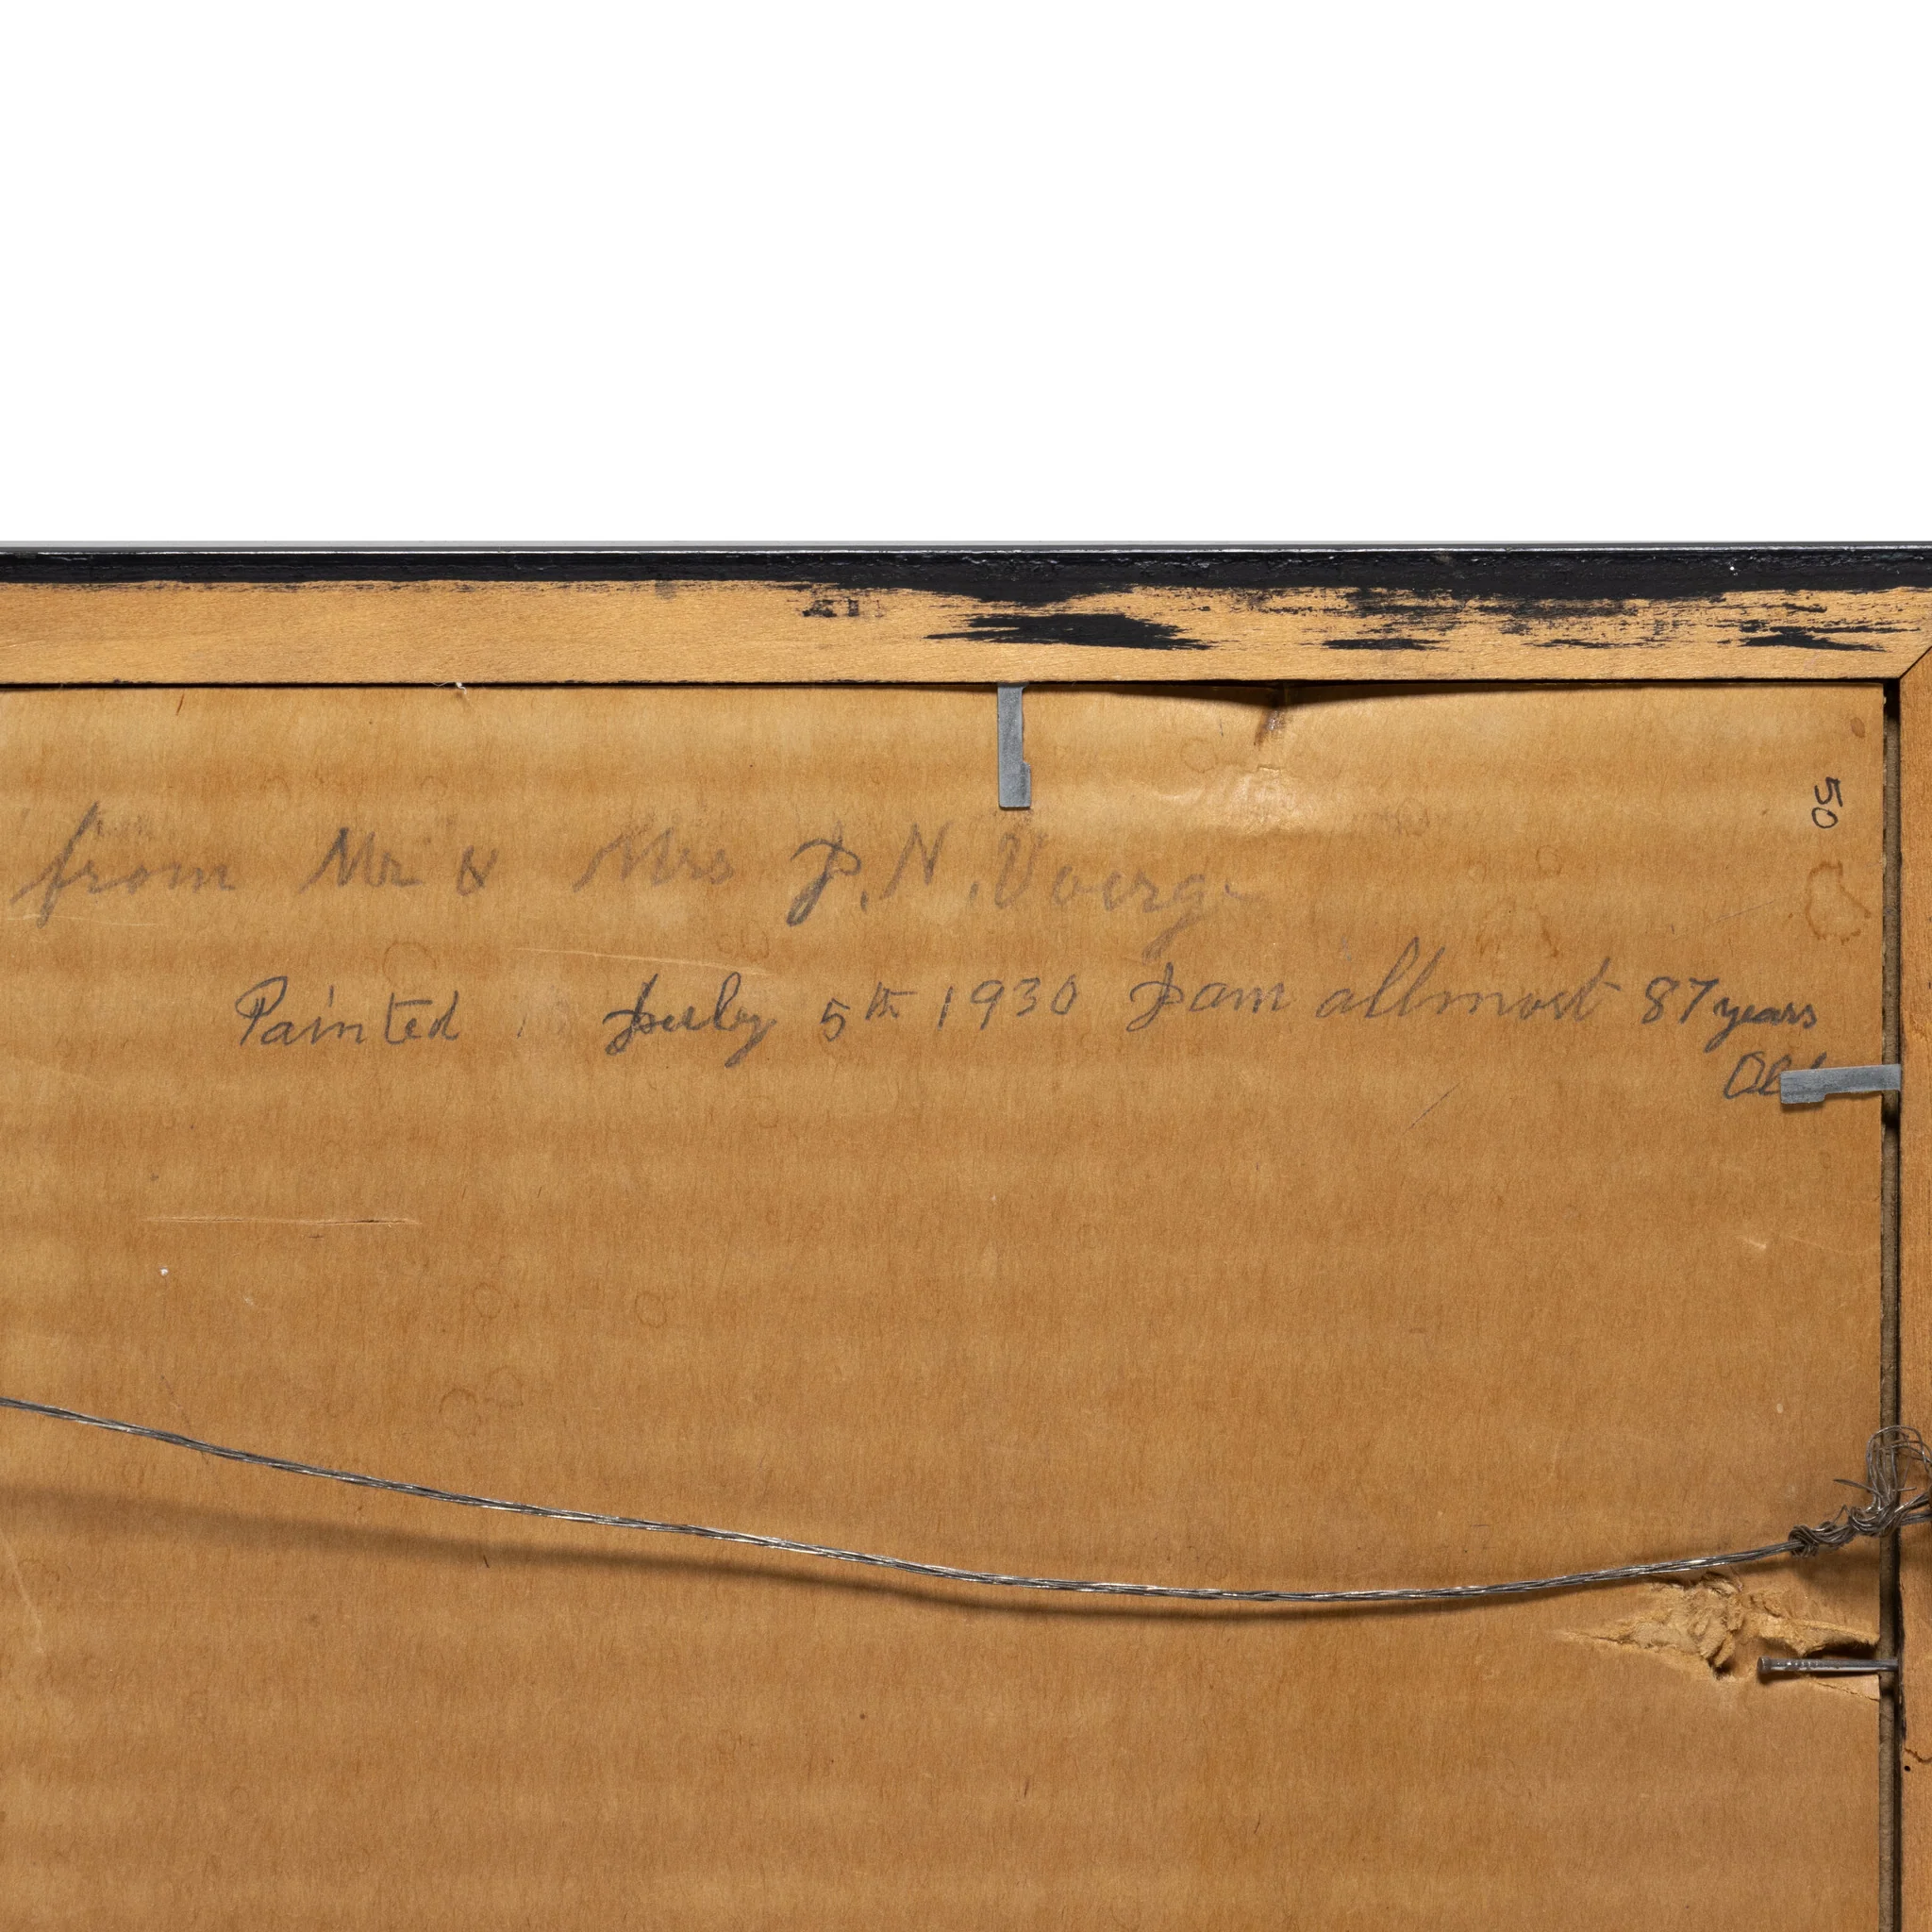 from Mr & Mrs J. N. Voerge
Painted July 5th 1930 I am allmost 87 years
Old
50